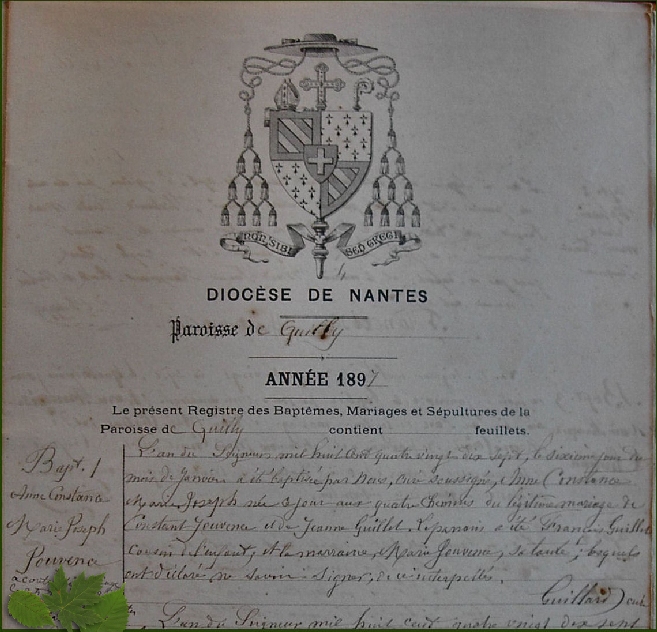 NON SIBI SED GREGI
DIOCÈSE DE NANTES
Paroisse de Quilly
ANNÉE 1897
Le présent Registre des Baptêmes, Mariages et Sépultures de la
Paroisse de Quilly contient feuillets.
Bapt. 1
Anne Constance
Marie Joseph
Jouvence
L'an du Seigneur mil huit cent quatre vingt dix sept, le sixième jour du
mois de Janvier a été baptisée par nous, curé soussigné, Anne Constance
Marie Joseph née jour aux quatre du légitime mariage de
Constant Jouvence et de Jeanne Guillet. Le parrain a été François Guillet
cousin de l'enfant, et la marraine, Marie Jouvence, sa tante; lesquels
ont déclaré ne savoir signer, de ce interpellés.
Guillard curé
L'an du Seigneur mil huit cent quatre vingt dix sept